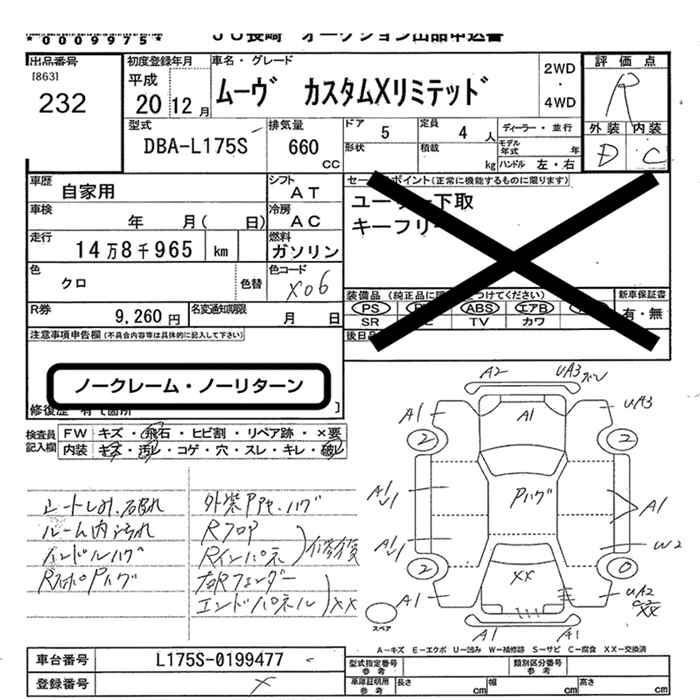 *0009975*
JU長崎 オークション出品申込書
出品番号
[863]
232
初度登録年月
平成
20 12月
車名・グレード
ムーヴ カスタムXリミテッド
2WD
・
4WD
評価点
R
外装 内装
D C
型式
DBA-L175S
排気量
660
CC
ドア 5
定員 4 人
形状
積載 kg
ディーラー・並行
モデル年式 年
ハンドル 左・右
車歴
自家用
シフト
AT
車検
年 月( 日)
冷房
AC
走行
14万8千965 km
燃料
ガソリン
色
クロ
色替
色コード
X06
R券
9,260円
名変通知期限
月 日
セールスポイント(正常に機能するものに限ります)
ユーザー下取
キーフリー
装備品
PS ABS エアB
SR TV カワ
新車保証書
有・無
後日
注意事項申告欄(不具合内容等は具体的に記入して下さい)
ノークレーム・ノーリターン
修復歴 有
検査員
記入欄
FW キズ・飛石・ヒビ割・リペア跡・×要
内装 キズ・汚レ・コゲ・穴・スレ・キレ・破レ
シートしみ、破れ
ルーム内汚れ
ハンドルハゲ
外装
Rフロア
Rインパネ
修復
右Rフェンダー
エンドパネル
XX
A2
UA3
A1
A1
UA3
2
2
A1
U1
Pハゲ
A1
A1
U1
W2
2
XX
0
A1
UA2
C2
XX
スペア
A1
A1
A-キズ E-エクボ U-凹み W-補修跡 S-サビ C-腐食 XX-交換済
車台番号
L175S-0199477
登録番号
×
型式指定番号
参考
類別区分番号
参考
車庫証明用
参考
長さ cm
幅 cm
高さ cm